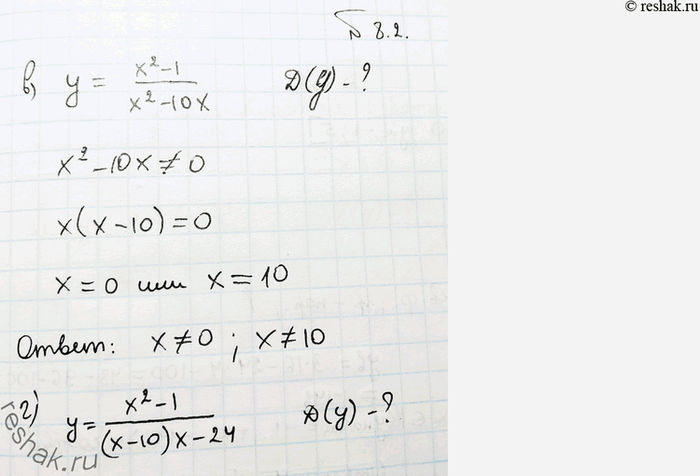 © reshak.ru
№ 8.2.
в) y = \frac{x^2-1}{x^2-10x} D(y) - ?
x^2 - 10x ≠ 0
x(x-10) = 0
x = 0 или x = 10
Ответ: x ≠ 0 ; x ≠ 10
г) y = \frac{x^2-1}{(x-10)x-24} D(y) - ?
reshak.ru